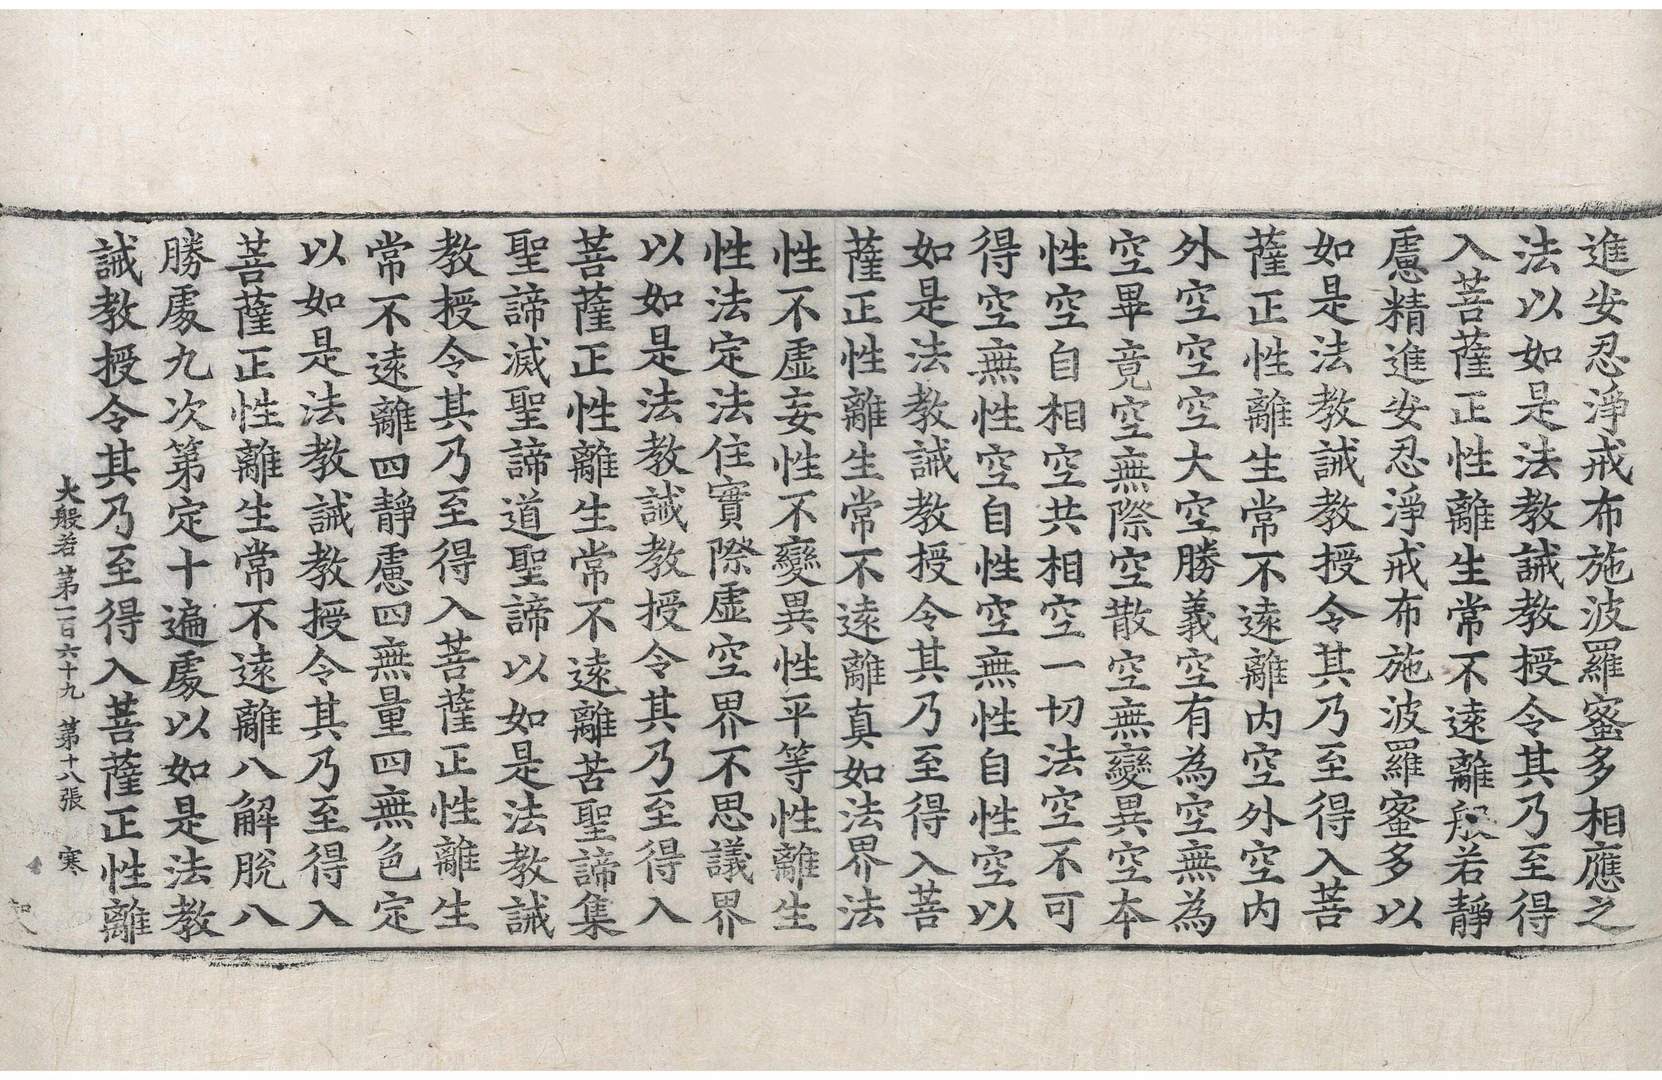 進安忍淨戒布施波羅蜜多相應之
法以如是法教誡教授令其乃至得
入菩薩正性離生常不遠離般若靜
慮精進安忍淨戒布施波羅蜜多以
如是法教誡教授令其乃至得入菩
薩正性離生常不遠離内空外空内
外空空空大空勝義空有為空無為
空畢竟空無際空散空無變異空本
性空自相空共相空一切法空不可
得空無性空自性空無性自性空以
如是法教誡教授令其乃至得入菩
薩正性離生常不遠離真如法界法
性不虛妄性不變異性平等性離生
性法定法住實際虛空界不思議界
以如是法教誡教授令其乃至得入
菩薩正性離生常不遠離苦聖諦集
聖諦滅聖諦道聖諦以如是法教誡
教授令其乃至得入菩薩正性離生
常不遠離四靜慮四無量四無色定
以如是法教誡教授令其乃至得入
菩薩正性離生常不遠離八解脫八
勝處九次第定十遍處以如是法教
誡教授令其乃至得入菩薩正性離
大般若第一百六十九 第十八張 寒